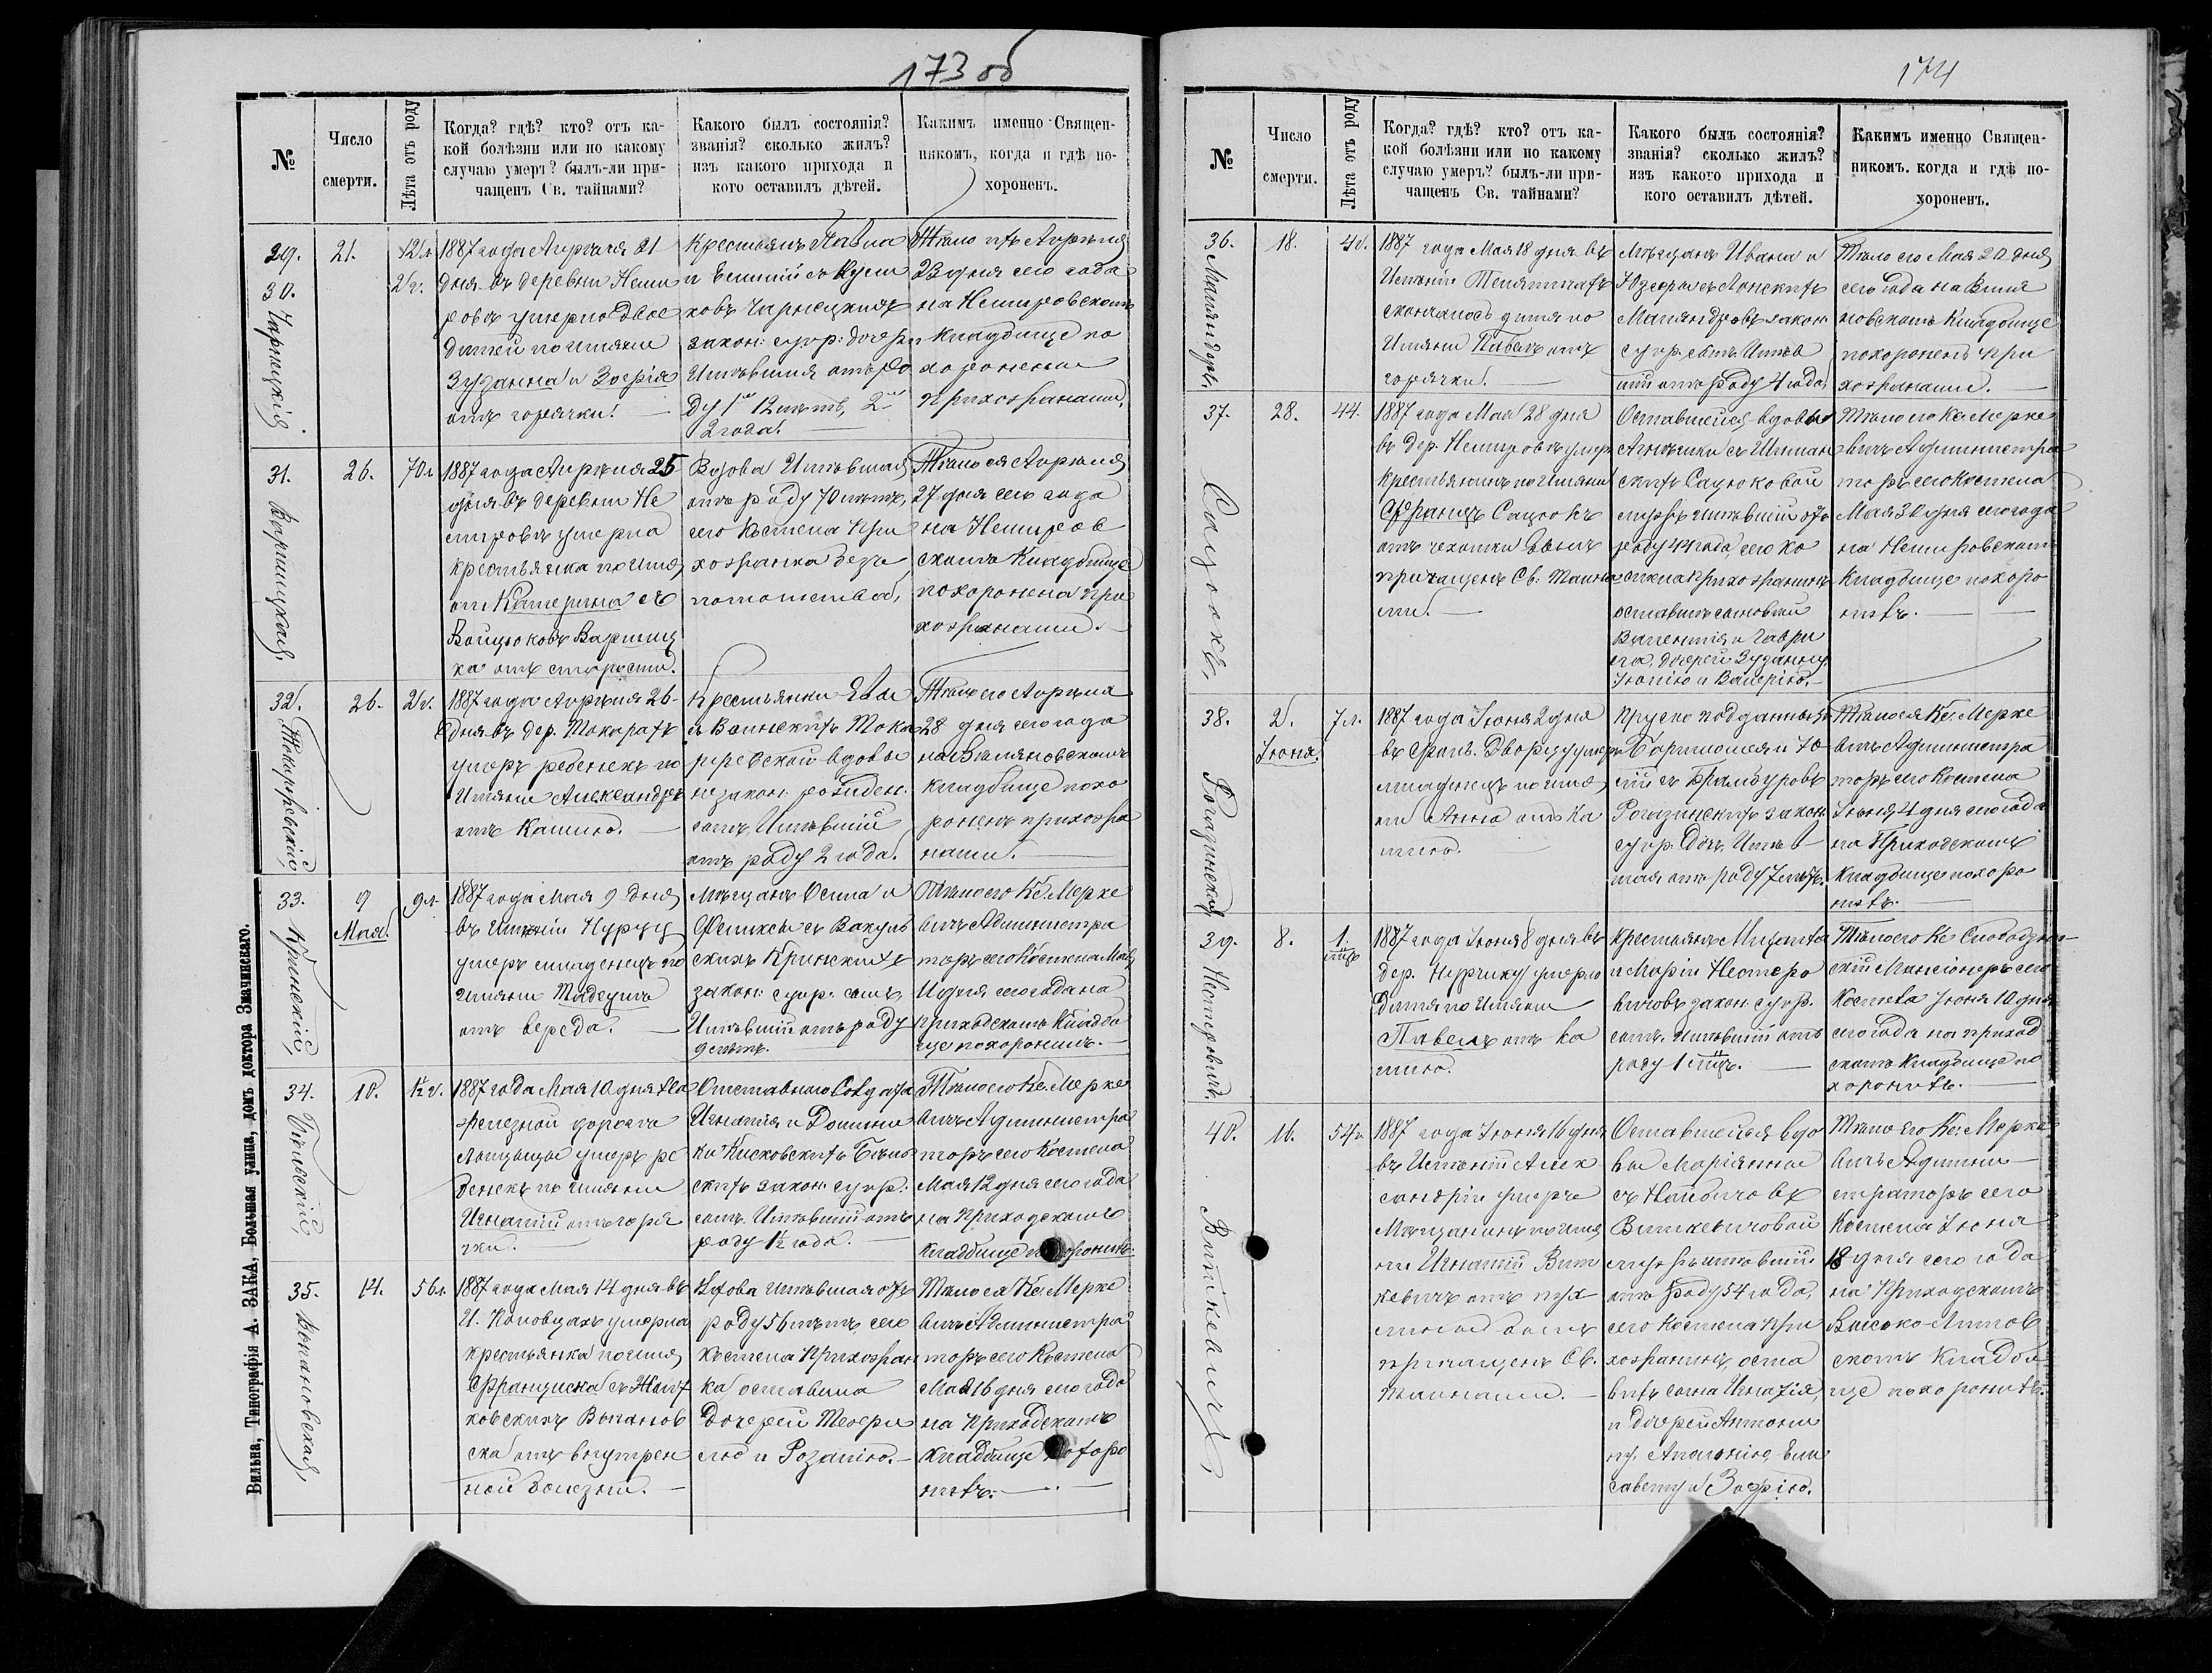 173 об
№
Число
смерти.
Лѣта отъ роду
Когда? гдѣ? кто? отъ ка-
кой болѣзни или по какому
случаю умеръ? былъ-ли при-
чащенъ Св. тайнами?
Какого былъ состоянія?
званія? сколько жилъ?
изъ какого прихода и
кого оставилъ дѣтей.
Какимъ именно Священ-
никомъ, когда и гдѣ по-
хороненъ.
29.
30.
Чарнецкія.
21.
12л.
2г.
1887 года Апрѣля 21
дня въ деревни Неми
ровѣ умерло двое
дѣтей по имени
Зузанна и Зофія
отъ горячки.
Крестьянъ Павла
и Емилій съ
ковъ Чарнецкихъ
закон: супр: дочери
Имѣвшія отъ ро
ду 1ая 12 лѣтъ, 2ая
2 года.
Тѣло ихъ Апрѣля
23 дня сего года
на Немировскомъ
кладбище по
хоронены
прихожанами.
31.
26.
70л.
1887 года Апрѣля 25
дня въ деревни Не
мировѣ умерла
крестьянка по име
ни Катерина съ
Войцюковъ Варпиц
ка отъ старости.
Вдова Имѣвшая
отъ роду 70 лѣтъ,
сего Костела при
хожанка безъ
потомства.
Тѣло ея Апрѣля
27 дня сего года
на Немиров
скомъ Кладбище
похоронена при
хожанами.
32.
26.
2г.
1887 года Апрѣля 26
дня въ дер. Токарахъ
умеръ ребенекъ по
Имени Александръ
отъ кашлю.
Крестьянки Евы
съ Воинскихъ Тока
ревской вдовы
незакон: рожден:
сынъ, Имѣвшій
отъ роду 2 года.
Тѣло его Апрѣля
28 дня сего года
на Вильяновскомъ
кладбище похо
роненъ прихожа
нами.
33.
Кринскій,
9
Мая.
9л.
1887 года Мая 9 дня
въ Имѣніи Нурцу
умеръ младенецъ по
имени Тадеушъ
отъ вереда.
Мѣщанъ Осипа и
Феликсы съ Вакуль
скихъ Кринскихъ
закон: супр: сынъ,
Имѣвшій отъ роду
9 лѣтъ.
Тѣло его Кс. Мерке
вичъ Администра
торъ сего Костела Мая
11 дня сего года на
приходскомъ Кладби
ще похоронилъ.
34.
10.
1½г.
1887 года Мая 10 дня на
желѣзной дорогѣ
умеръ ре
бенекъ по имени
Игнатій отъ горя
чки.
Отставного Солдата
Игнатія и Домини
ки Кисковскихъ Бѣль
скихъ закон: супр:
сынъ. Имѣвшій отъ
роду 1½ года.
Тѣло его Кс. Мерке
вичъ Администра
торъ сего Костела
Мая 12 дня сего года
на Приходскомъ
Кладбище похоронилъ.
35.
14.
56л.
1887 года Мая 14 дня въ
И. Поповцахъ умерла
крестьянка по имя
Францишка съ
ховскихъ Выганов
ска отъ внутрен
ной болезни.
Вдова имѣвшая отъ
роду 56 лѣтъ, сего
костела прихожан
ка оставила
Дочерей Теофи
лю и Розалію.
Тѣло ея Кс. Мерке
вичъ Администра
торъ сего Костела
Мая 16 дня сего года
на Приходскомъ
кладбище похоро
нилъ.
Вильна, Типографія А. ЗАКА, Большая улица, домъ доктора Змачинскаго.
174
№
Число
смерти.
Лѣта отъ роду
Когда? гдѣ? кто? отъ ка-
кой болѣзни или по какому
случаю умеръ? былъ-ли при-
чащенъ Св. тайнами?
Какого былъ состоянія?
званія? сколько жилъ?
изъ какого прихода и
кого оставилъ дѣтей.
Какимъ именно Священ-
никомъ, когда и гдѣ по-
хороненъ.
36.
18.
4г.
1887 года Мая 18 дня въ
Имѣніи
скончалось дитя по
Имени Павелъ отъ
горячки.
Мѣщанъ Ивана и
Юзефы съ Лонскихъ
закон:
супр: сынъ Имѣв
шій отъ роду 4 года.
Тѣло его Мая 20 дня
сего года на Вилья
новскомъ кладбище
похороненъ при
хожанами.
37.
Сацюкъ,
28.
44.
1887 года Мая 28 дня
въ дер. Немировѣ умеръ
крестьянинъ по имени
Францъ Сацюкъ
отъ чехотки былъ
причащенъ Св. Тайна
ми.
Оставшейся вдовы
Агнешки съ
скихъ Сацюковой
мужъ имѣвшій отъ
роду 44 года, сего ко
стела прихожанинъ
оставилъ сыновей
Валентія и Гаври
ла, дочерей Зузанну
Юлію и Валерію.
Тѣло его Кс. Мерке
вичъ Администра
торъ сего Костела
Мая 30 дня сего года
на Немировскомъ
Кладбище похоро
нилъ.
38.
Рогазинская
2.
Іюня.
7л.
1887 года Іюня 2 дня
въ Фольв. Дворцу умеръ
младенецъ по име
ни Анна отъ ка
шлю.
Прусно подданныхъ
Бартломея и Ю
ліи съ Брамбуровъ
Рогазинскихъ закон:
супр: Дочь, Имѣв
шая отъ роду 7 лѣтъ.
Тѣло ея Кс. Мерке
вичъ Администра
торъ сего Костела
Іюня 4 дня сего года
на Приходскомъ
Кладбище похоро
нилъ.
39.
Нестеровичъ.
8.
1.
мѣц.
1887 года Іюня 8 дня въ
дер. Нурчику умерло
Дитя по Имени
Павелъ отъ ка
шлю.
Крестьянъ Михаила
и Маріи Нестеро
вичовъ закон: супр:
сынъ. Имѣвшій отъ
роду 1 мѣц.
Тѣло его Кс. Слободзин-
скій Мансіонеръ сего
Костела Іюня 10 дня
сего года на приход
скомъ кладбище по
хоронилъ.
40.
Виткевичъ,
16.
54г.
1887 года Іюня 16 дня
въ Имѣніи Алек
сандріи умеръ
Мѣщанинъ по име
ни Игнатій Вит
кевичъ отъ пух
лины былъ
причащенъ Св.
Тайнами.
Оставшейся вдо
вы Маріянны
съ
Виткевичовой
мужъ имѣвшій
отъ роду 54 года,
сего Костела при
хожанинъ, оста
вилъ сына Игнатія,
и дочерей Антони
ну, Аполонію, Ели
савету и Зофію.
Тѣло его Кс. Мерке
вичъ Админи-
страторъ сего
Костела Іюня
18 дня сего года
на Приходскомъ
Высоко-Литов
скомъ кладби
ще похоронилъ.